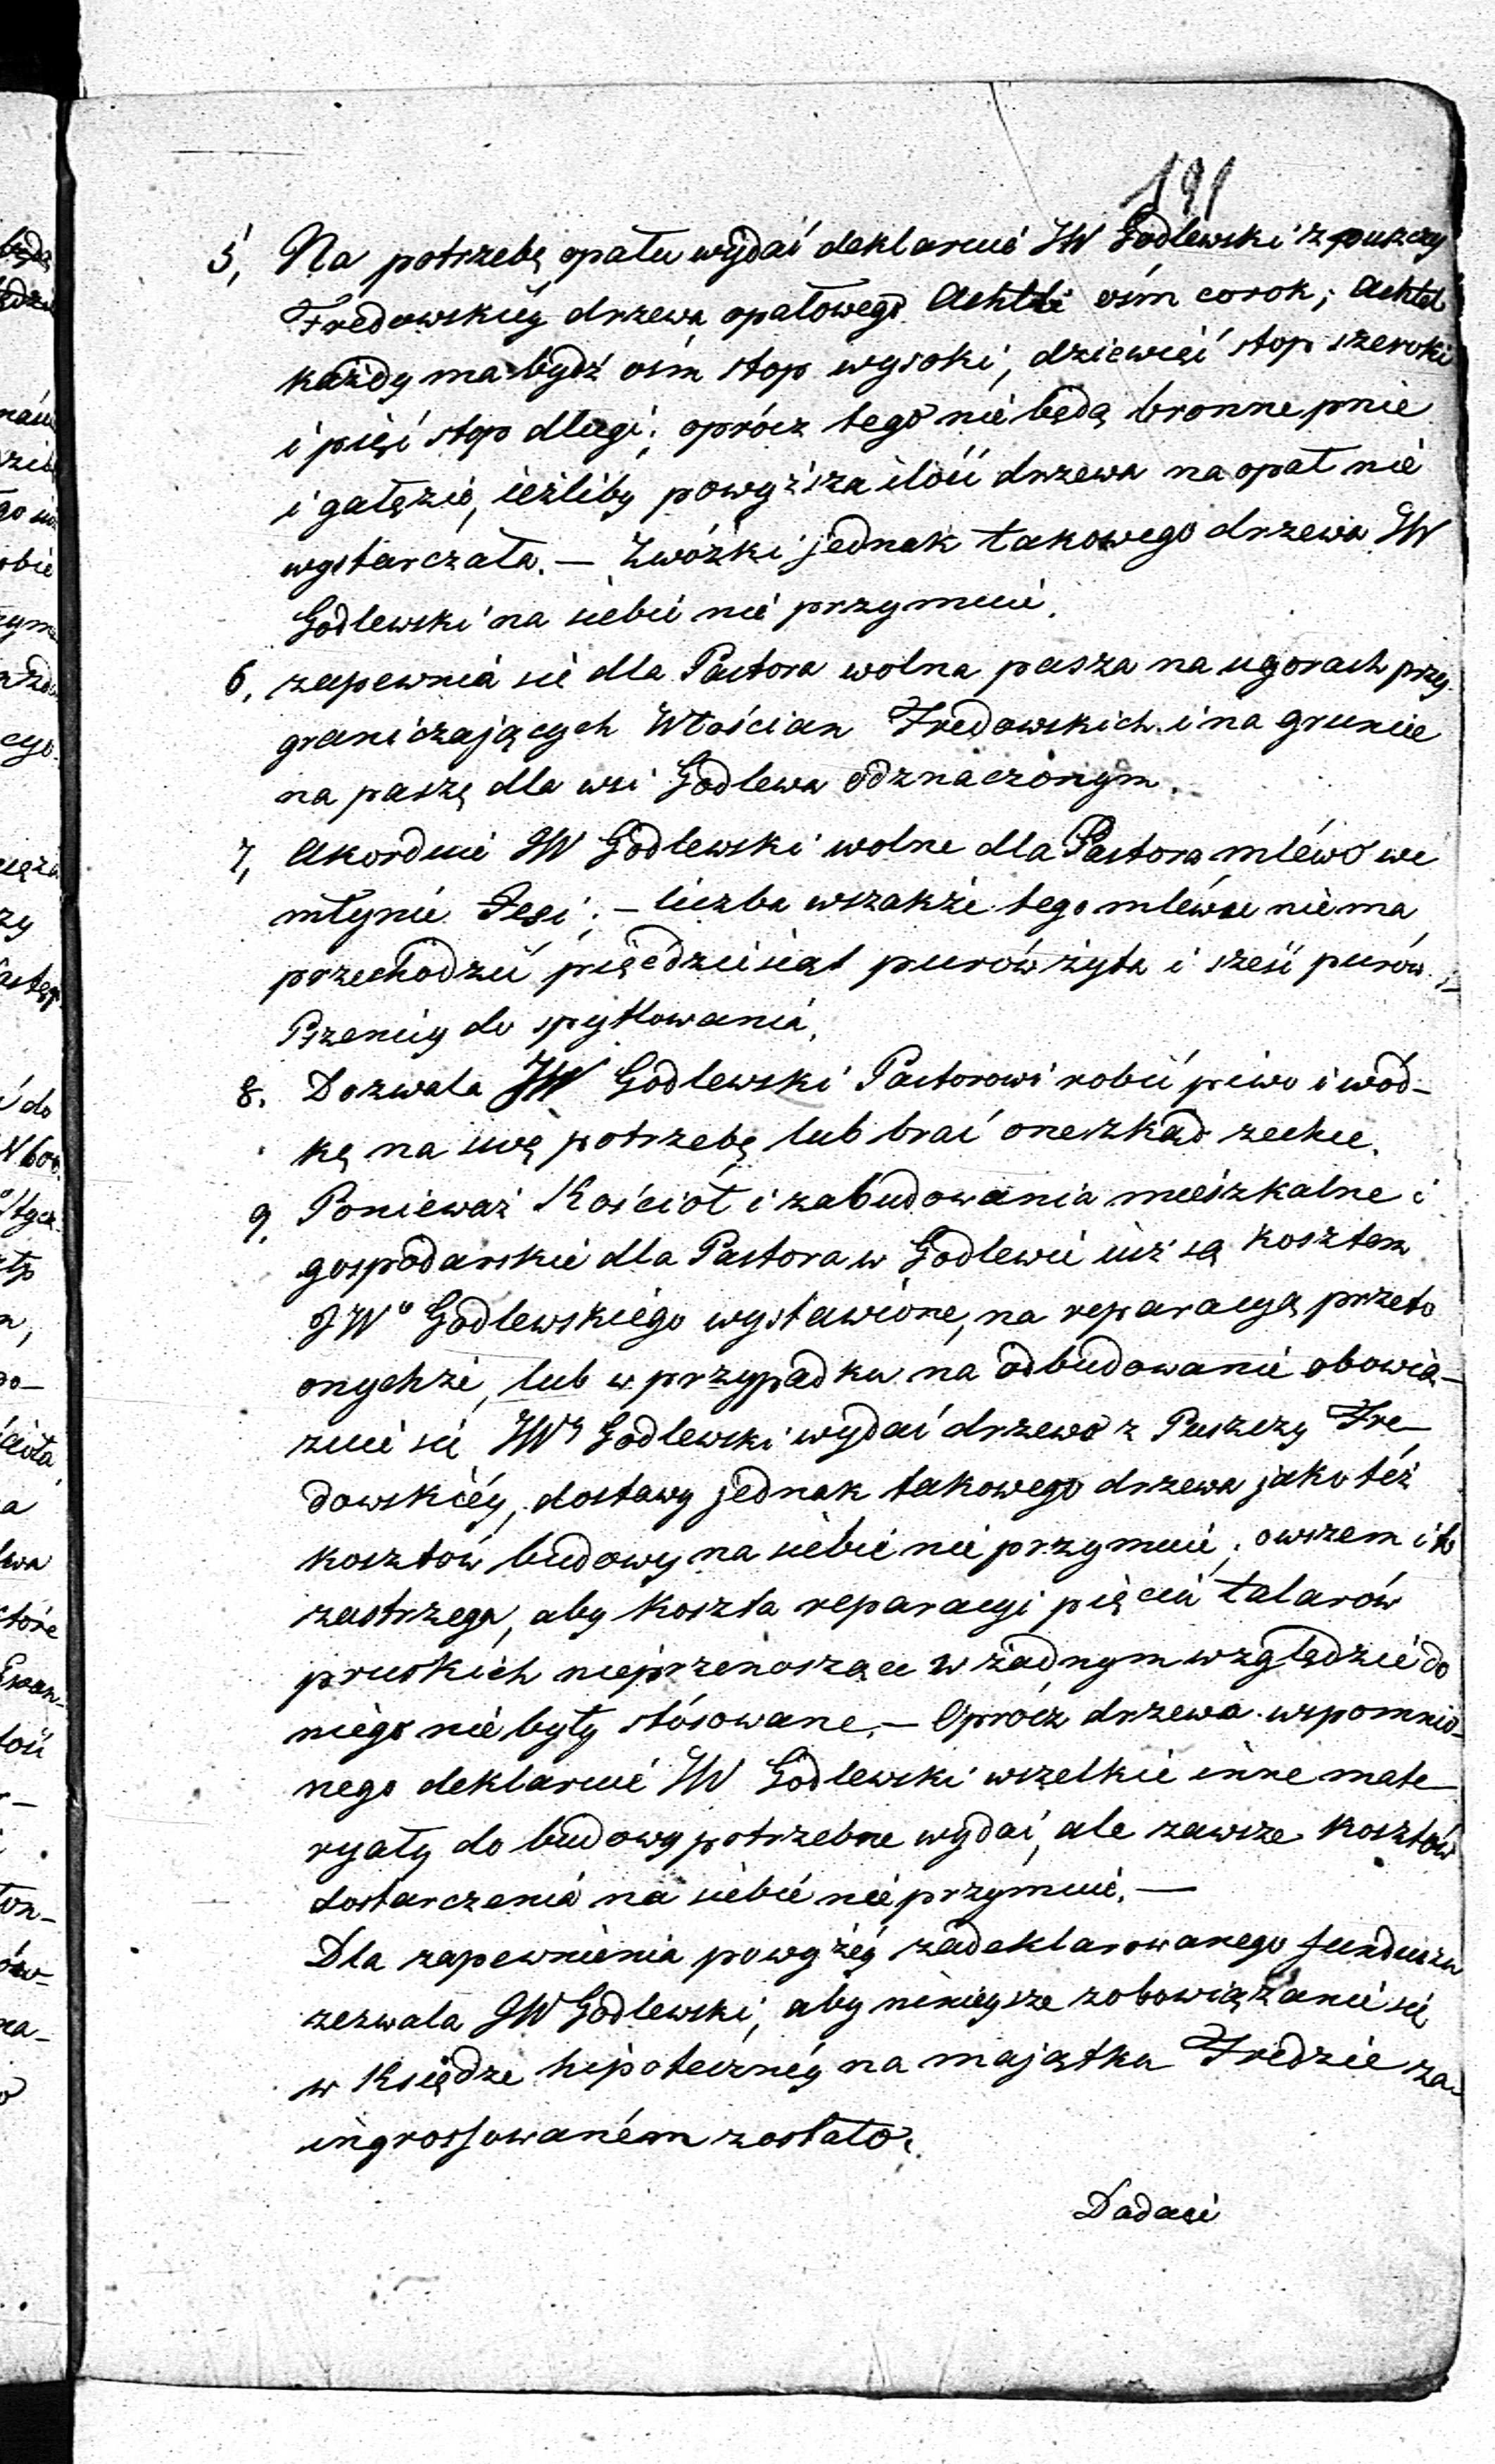 191
5, Na potrzebę opału wydać deklaruie JW Godlewski z puszczy
Fredowskiey drzewa opałowego Achtli ośm corok; Achtel
każdy ma bydź ośm stop wysoki, dziewięć stop szeroki
i pięć stop długi; oprócz tego nie będą bronne pnie
i gałęzie, ieżliby powyższa ilość drzewa na opał nie
wystarczała. — Zwózki jednak takowego drzewa JW
Godlewski na siebie nie przymuie.
6, zapewnia sie dla Pastora wolna pasza na ugorach przy-
graniczających Włościan Fredowskich i na gruncie
na paszę dla wsi Godlewa odznaczonym.
7, Akorduie JW Godlewski wolne dla Pastora mléwo we
młynie Jesi; — liczba wszakże tego mléwa nie ma
przechodzić pięćdziesiąt purów żyta i sześć purów
Pszenicy do spytlowania.
8. Dozwala JW Godlewski Pastorowi robić piwo i wód-
kę na swą potrzebę lub brać one zkąd zechce.
9, Ponieważ Kościoł i zabudowania mieszkalne i
gospodarskie dla Pastora w Godlewie iuż są kosztem
JWo Godlewskiego wystawione, na reparacyą przeto
onychże, lub w przypadku na odbudowanie obowią-
zuie się JWy Godlewski wydać drzewo z Puszczy Fre-
dowskiéy, dostawy jednak takowego drzewa jako téż
kosztów budowy na siebie nie przymuie; owszem i to
zastrzega, aby koszta reparacyi pięciu talarów
pruskich nieprzenoszące w żadnym względzie do
niego nie były stósowane. — Oprócz drzewa wspomnio-
nego deklaruie JW Godlewski wszelkie inne mate-
ryały do budowy potrzebne wydać, ale zawsze kosztów
dostarczenia na siebie nie przymuie. —
Dla zapewnienia powyżéy zadeklarowanego funduszu
zezwala JW Godlewski, aby ninieysze zobowiązanie się
w Księdze hipotecznéy na majątku Fredzie za-
ingrossowaném zostało.
Dadaci